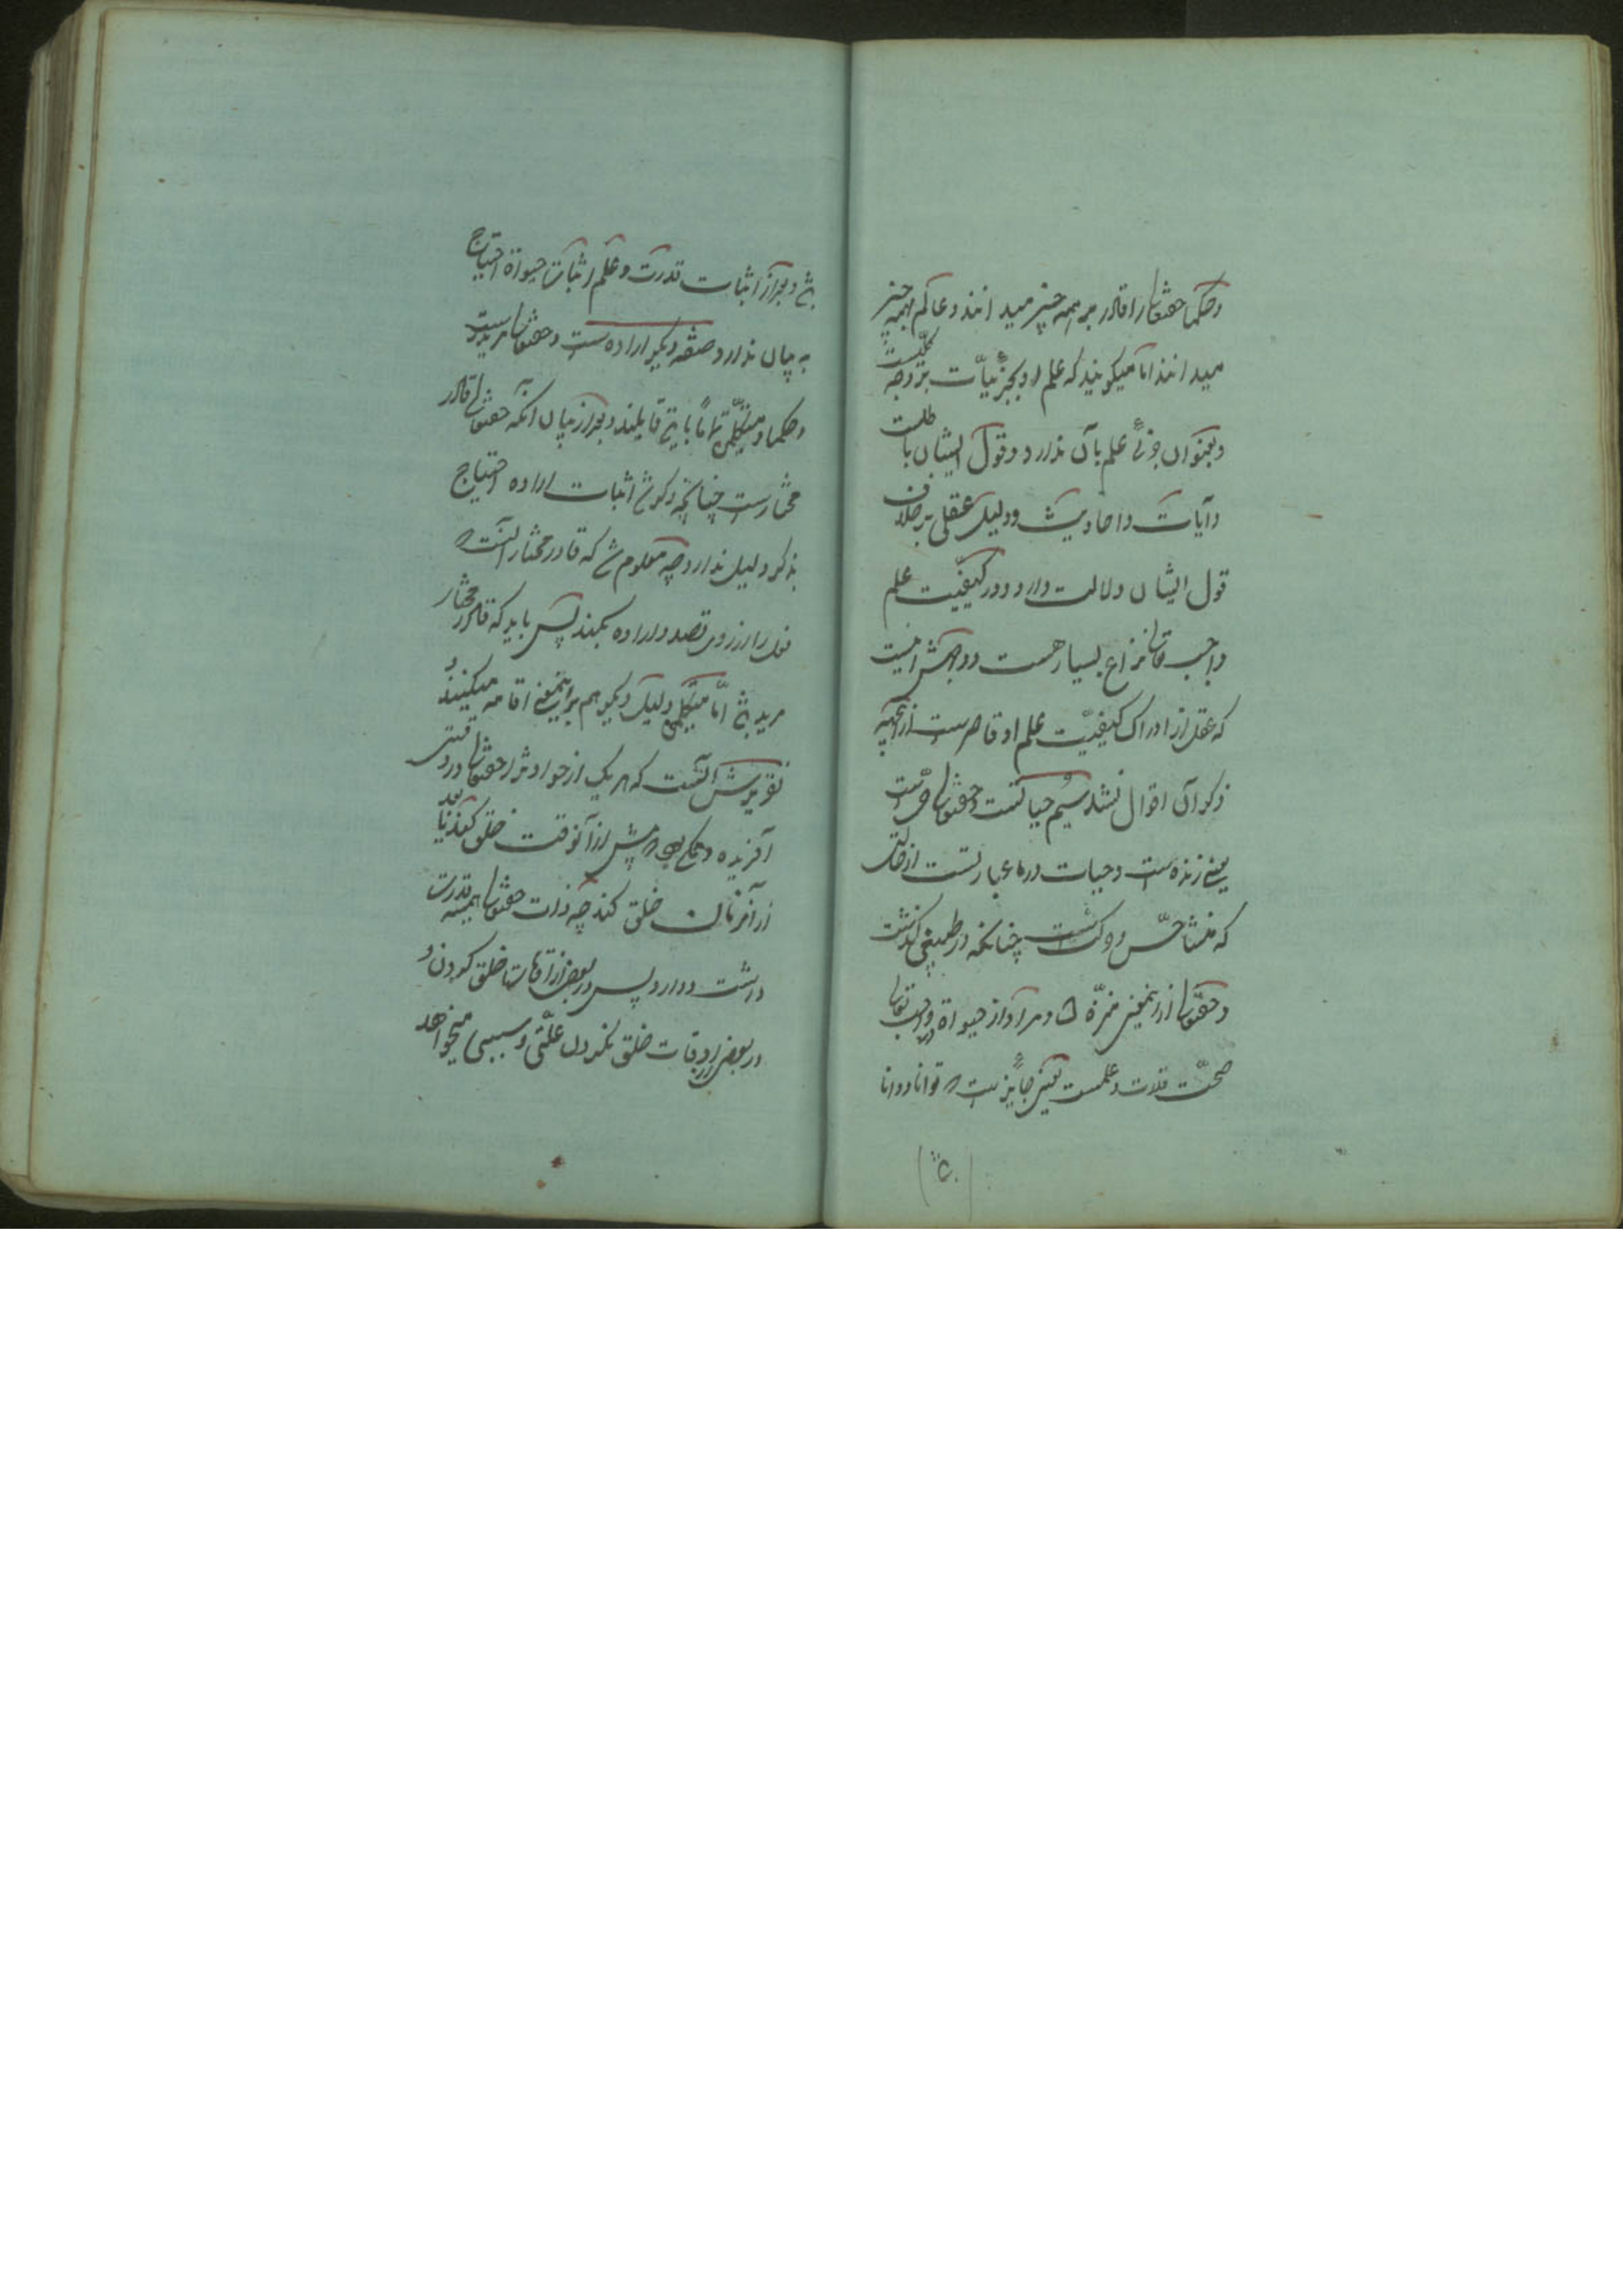 و حکما حقتعالی را قادر بر همه چیز میدانند و عالم بهمه چیز
میدانند اما میگویند که علم او بجزئیات بر وجه کلیست
و بعنوان جزئی علم بآن ندارد و قول ایشان باطلست
و آیات و احادیث و دلیل عقلی بر خلاف
قول ایشان دلالت دارد و در کیفیت علم
واجب تعالی نزاع بسیار هست و دانش اینست
که عقل از ادراک کیفیت علم او قاصرست
ذکر آن اقوال نشد سیم حیاتست و حقتعالی حی است
یعنی زنده است و حیات در ما عبارتست از حالتی
که منشأ حس و حرکتست چنانکه در طبیعی گذشت
و حقتعالی ازین معنی منزه است و مراد از حیوة واجب تعالی
صحت قدرت و علمست یعنی جایزست که توانا و دانا
باشد و بعد از اثبات قدرت و علم اثبات حیوة احتیاج
به بیان ندارد و صفة دیگر اراده است و حقتعالی مریدست
و حکما و متکلمین تماما باین قایلند و بعد از بیان آنکه حقتعالی قادر
مختارست چنانچه ذکر شد اثبات اراده احتیاج
بذکر دلیل ندارد چه معلوم شد که قادر مختار آنست که
فعل را از روی قصد و اراده بکند پس باید که قادر مختار
مرید باشد اما متکلمین دلیل دیگر هم بر اینمعنی اقامه میکنند و
تقریرش آنست که هر یک از حوادث را حقتعالی در وقتی
آفریده و ممکن بود که پیش از آنوقت خلق کند یا بعد
از آنزمان خلق کند چه ذات حقتعالی همیشه قدرت
داشت و دارد پس در بعض از اوقات خلق کردن و
در بعض اوقات خلق نکردن علتی و سببی میخواهد